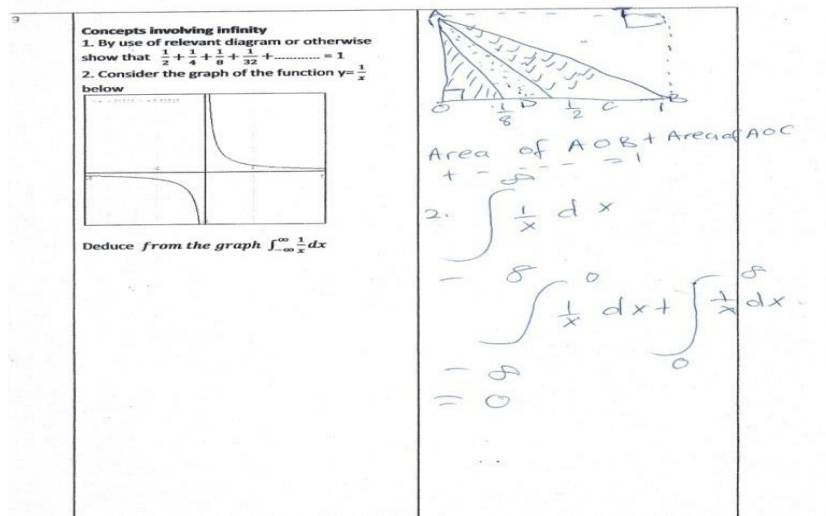 9
Concepts involving infinity
1. By use of relevant diagram or otherwise
show that 1/2 + 1/4 + 1/8 + 1/32 + ............ = 1
2. Consider the graph of the function y= 1/x
below
Deduce from the graph ∫_{-∞}^{∞} 1/x dx
A
O 1/8 D 1/2 C 1 B
Area of AOB + Area of AOC
+ - - - - = 1
2. ∫_{-∞}^{∞} 1/x dx
∫_{-∞}^{0} 1/x dx + ∫_{0}^{∞} 1/x dx
= 0